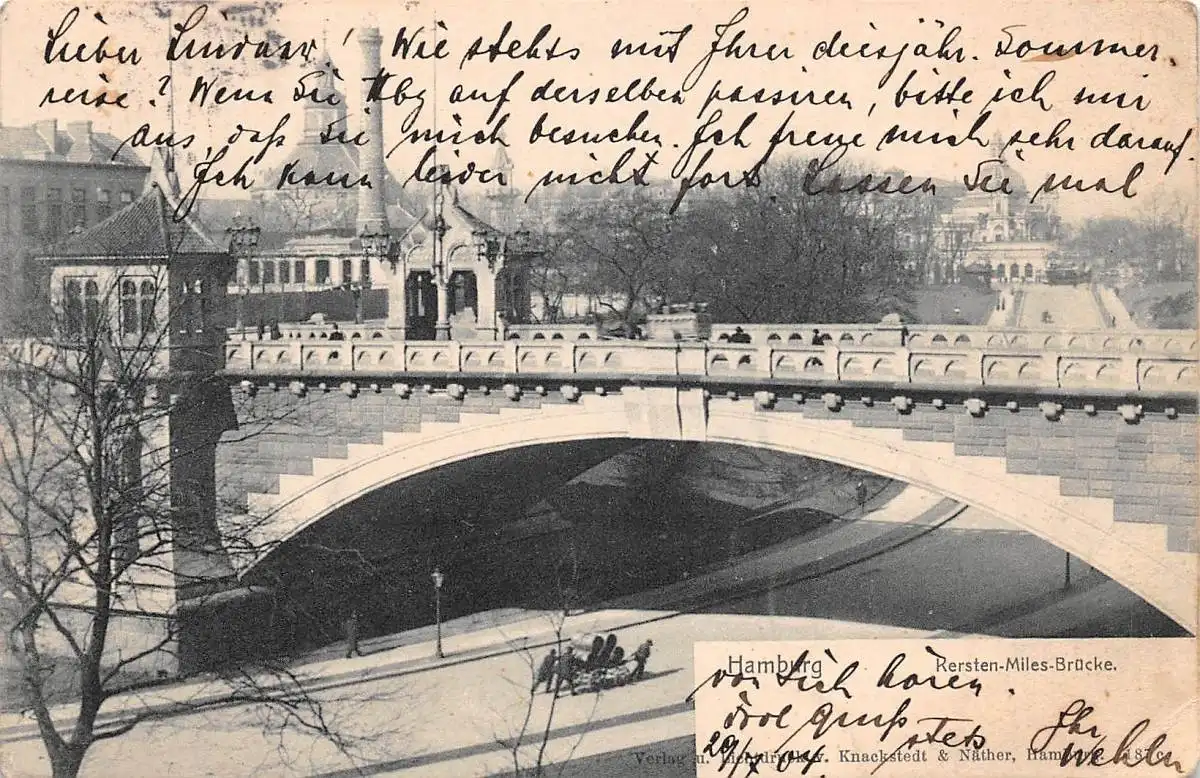 Lieber Lindner! Wie stehts mit Ihrer diesjähr. Sommer-
reise? Wenn Sie Hbg auf derselben passiren, bitte ich mir
aus, daß Sie mich besuchen. Ich freue mich sehr darauf.
Ich kann leider nicht fort Lassen Sie mal
Hamburg Kersten-Miles-Brücke.
von Sich hören.
Gruß
29/ 04. stets Ihr
Verlag u. Lichtdruck v. Knackstedt & Näther, Hamburg.